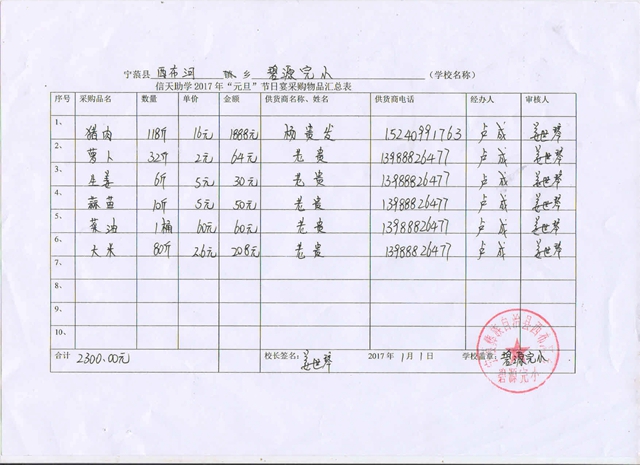 宁蒗县 西布河 镇、乡 碧源完小 (学校名称)
信天助学 2017 年“元旦”节日宴采购物品汇总表
序号 采购品名 数量 单价 金额 供货商名称、姓名 供货商电话 经办人 审核人
1、 猪肉 118斤 16元 1888元 杨贵发 15240991763 卢成 姜世琴
2、 萝卜 32斤 2元 64元 老贵 13988826477 卢成 姜世琴
3、 生姜 6斤 5元 30元 老贵 13988826477 卢成 姜世琴
4、 蒜苗 10斤 5元 50元 老贵 13988826477 卢成 姜世琴
5、 菜油 1桶 60元 60元 老贵 13988826477 卢成 姜世琴
6、 大米 80斤 2.6元 208元 老贵 13988826477 卢成 姜世琴
7、
8、
9、
10、
合计 2300.00元 校长签名: 姜世琴 2017 年 1月 1日 学校盖章: 碧源完小
碧源完小